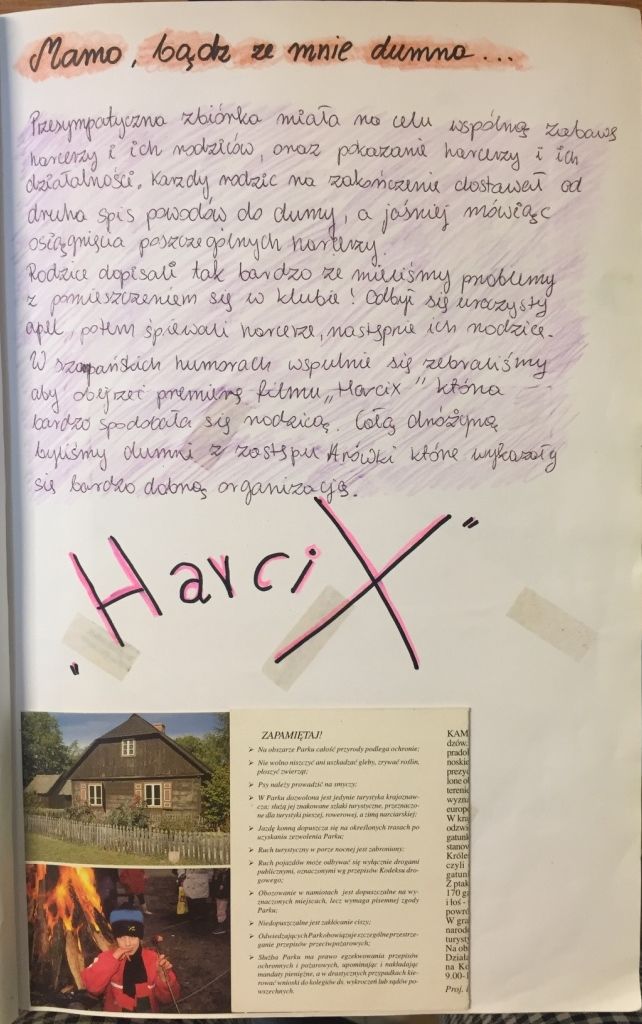 Mamo, bądź ze mnie dumna...
Przesympatyczna zbiórka miała na celu wspólną zabawę
harcerzy i ich rodziców, oraz pokazanie harcerzy i ich
działalności. Każdy rodzic na zakończenie dostawał od
druha spis powodów do dumy, a jaśniej mówiąc
osiągnięcia poszczególnych harcerzy.
Rodzice dopisali tak bardzo że mieliśmy problemy
z pomieszczeniem się w klubie! Odbył się uroczysty
apel, potem śpiewali harcerze, następnie ich rodzice.
W szampańskich humorach wspulnie się zebraliśmy
aby obejrzeć premierę filmu „Harcix" która
bardzo spodobała się rodzicą. Całą drużyną
byliśmy dumni z zastępu Arówki które wykazały
się bardzo dobrą organizacją.
„HarciX"
ZAPAMIĘTAJ!
➢ Na obszarze Parku całość przyrody podlega ochronie;
➢ Nie wolno niszczyć ani uszkadzać gleby, zrywać roślin,
płoszyć zwierząt;
➢ Psy należy prowadzić na smyczy;
➢ W Parku dozwolona jest jedynie turystyka krajoznaw-
cza; służą jej znakowane szlaki turystyczne, przeznaczo-
ne dla turystyki pieszej, rowerowej, a zimą narciarskiej;
➢ Jazdę konną dopuszcza się na określonych trasach po
uzyskaniu zezwolenia Parku;
➢ Ruch turystyczny w porze nocnej jest zabroniony;
➢ Ruch pojazdów może odbywać się wyłącznie drogami
publicznymi, oznaczonymi wg przepisów Kodeksu dro-
gowego;
➢ Obozowanie w namiotach jest dopuszczalne na wy-
znaczonych miejscach, lecz wymaga pisemnej zgody
Parku;
➢ Niedopuszczalne jest zakłócanie ciszy;
➢ Odwiedzających Park obowiązuje szczególne przestrze-
ganie przepisów przeciwpożarowych;
➢ Służba Parku ma prawo egzekwowania przepisów
ochronnych i pożarowych, upominając i nakładając
mandaty pieniężne, a w drastycznych przypadkach kie-
rować wnioski do kolegiów ds. wykroczeń lub sądów po-
wszechnych.
KAM
dzów.
pradol
noskie
prezyc
lone o
terenie
wyzna
europe
W kra
odzwi
gatunk
stanow
Króle
czyli
gatun
Z ptak
170 ga
i łoś -
powró
W gra
narode
turyst
Na ob
Działa
na Ko
9.00-1
Proj. i